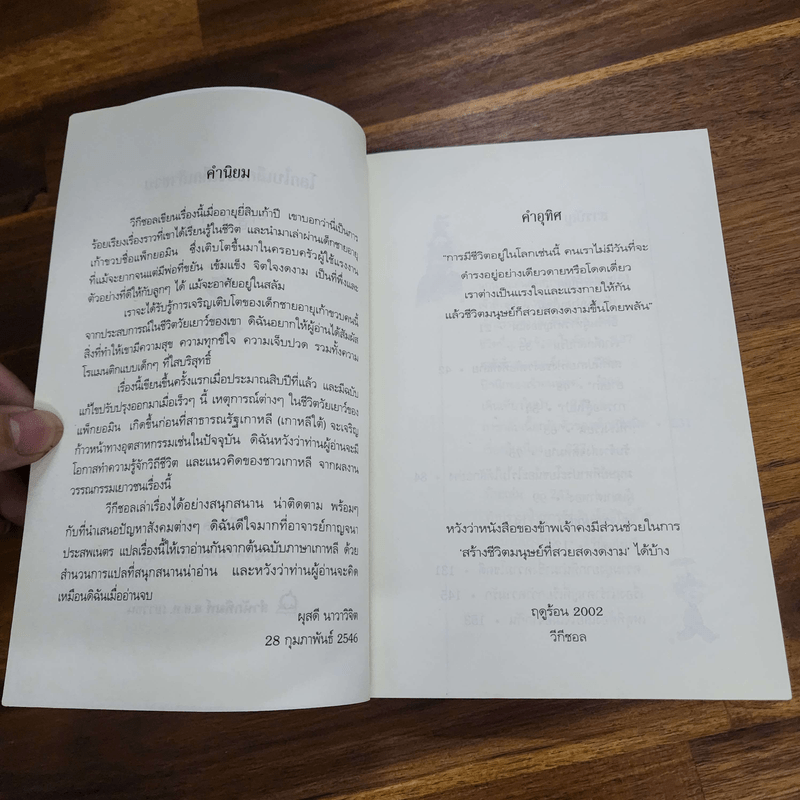 คำนิยม
วีกีชอลเขียนเรื่องนี้เมื่ออายุยี่สิบเก้าปี เขาบอกว่านี่เป็นการ
ร้อยเรียงเรื่องราวที่เขาได้เรียนรู้ในชีวิต และนำมาเล่าผ่านเด็กชายอายุ
เก้าขวบชื่อแพ็กยอมิน ซึ่งเติบโตขึ้นมาในครอบครัวผู้ใช้แรงงาน
ที่แม้จะยากจนแต่มีพ่อที่ขยัน เข้มแข็ง จิตใจงดงาม เป็นที่พึ่งและ
ตัวอย่างที่ดีให้กับลูกๆ ได้ แม้จะอาศัยอยู่ในสลัม
เราจะได้รับรู้การเจริญเติบโตของเด็กชายอายุเก้าขวบคนนี้
จากประสบการณ์ในชีวิตวัยเยาว์ของเขา ดิฉันอยากให้ผู้อ่านได้สัมผัส
สิ่งที่ทำให้เขามีความสุข ความทุกข์ใจ ความเจ็บปวด รวมทั้งความ
โรแมนติกแบบเด็กๆ ที่ใสบริสุทธิ์
เรื่องนี้เขียนขึ้นครั้งแรกเมื่อประมาณสิบปีที่แล้ว และมีฉบับ
แก้ไขปรับปรุงออกมาเมื่อเร็วๆ นี้ เหตุการณ์ต่างๆ ในชีวิตวัยเยาว์ของ
แพ็กยอมิน เกิดขึ้นก่อนที่สาธารณรัฐเกาหลี (เกาหลีใต้) จะเจริญ
ก้าวหน้าทางอุตสาหกรรมเช่นในปัจจุบัน ดิฉันหวังว่าท่านผู้อ่านจะมี
โอกาสทำความรู้จักวิถีชีวิต และแนวคิดของชาวเกาหลี จากผลงาน
วรรณกรรมเยาวชนเรื่องนี้
วีกีชอลเล่าเรื่องได้อย่างสนุกสนาน น่าติดตาม พร้อมๆ
กับที่นำเสนอปัญหาสังคมต่างๆ ดิฉันดีใจมากที่อาจารย์กาญจนา
ประสพเนตร แปลเรื่องนี้ให้เราอ่านกันจากต้นฉบับภาษาเกาหลี ด้วย
สำนวนการแปลที่สนุกสนานน่าอ่าน และหวังว่าท่านผู้อ่านจะคิด
เหมือนดิฉันเมื่ออ่านจบ
ผุสดี นาวาวิจิต
28 กุมภาพันธ์ 2546
คำอุทิศ
"การมีชีวิตอยู่ในโลกเช่นนี้ คนเราไม่มีวันที่จะ
ดำรงอยู่อย่างเดียวดายหรือโดดเดี่ยว
เราต่างเป็นแรงใจและแรงกายให้กัน
แล้วชีวิตมนุษย์ก็สวยสดงดงามขึ้นโดยพลัน"
หวังว่าหนังสือของข้าพเจ้าคงมีส่วนช่วยในการ
'สร้างชีวิตมนุษย์ที่สวยสดงดงาม' ได้บ้าง
ฤดูร้อน 2002
วีกีชอล